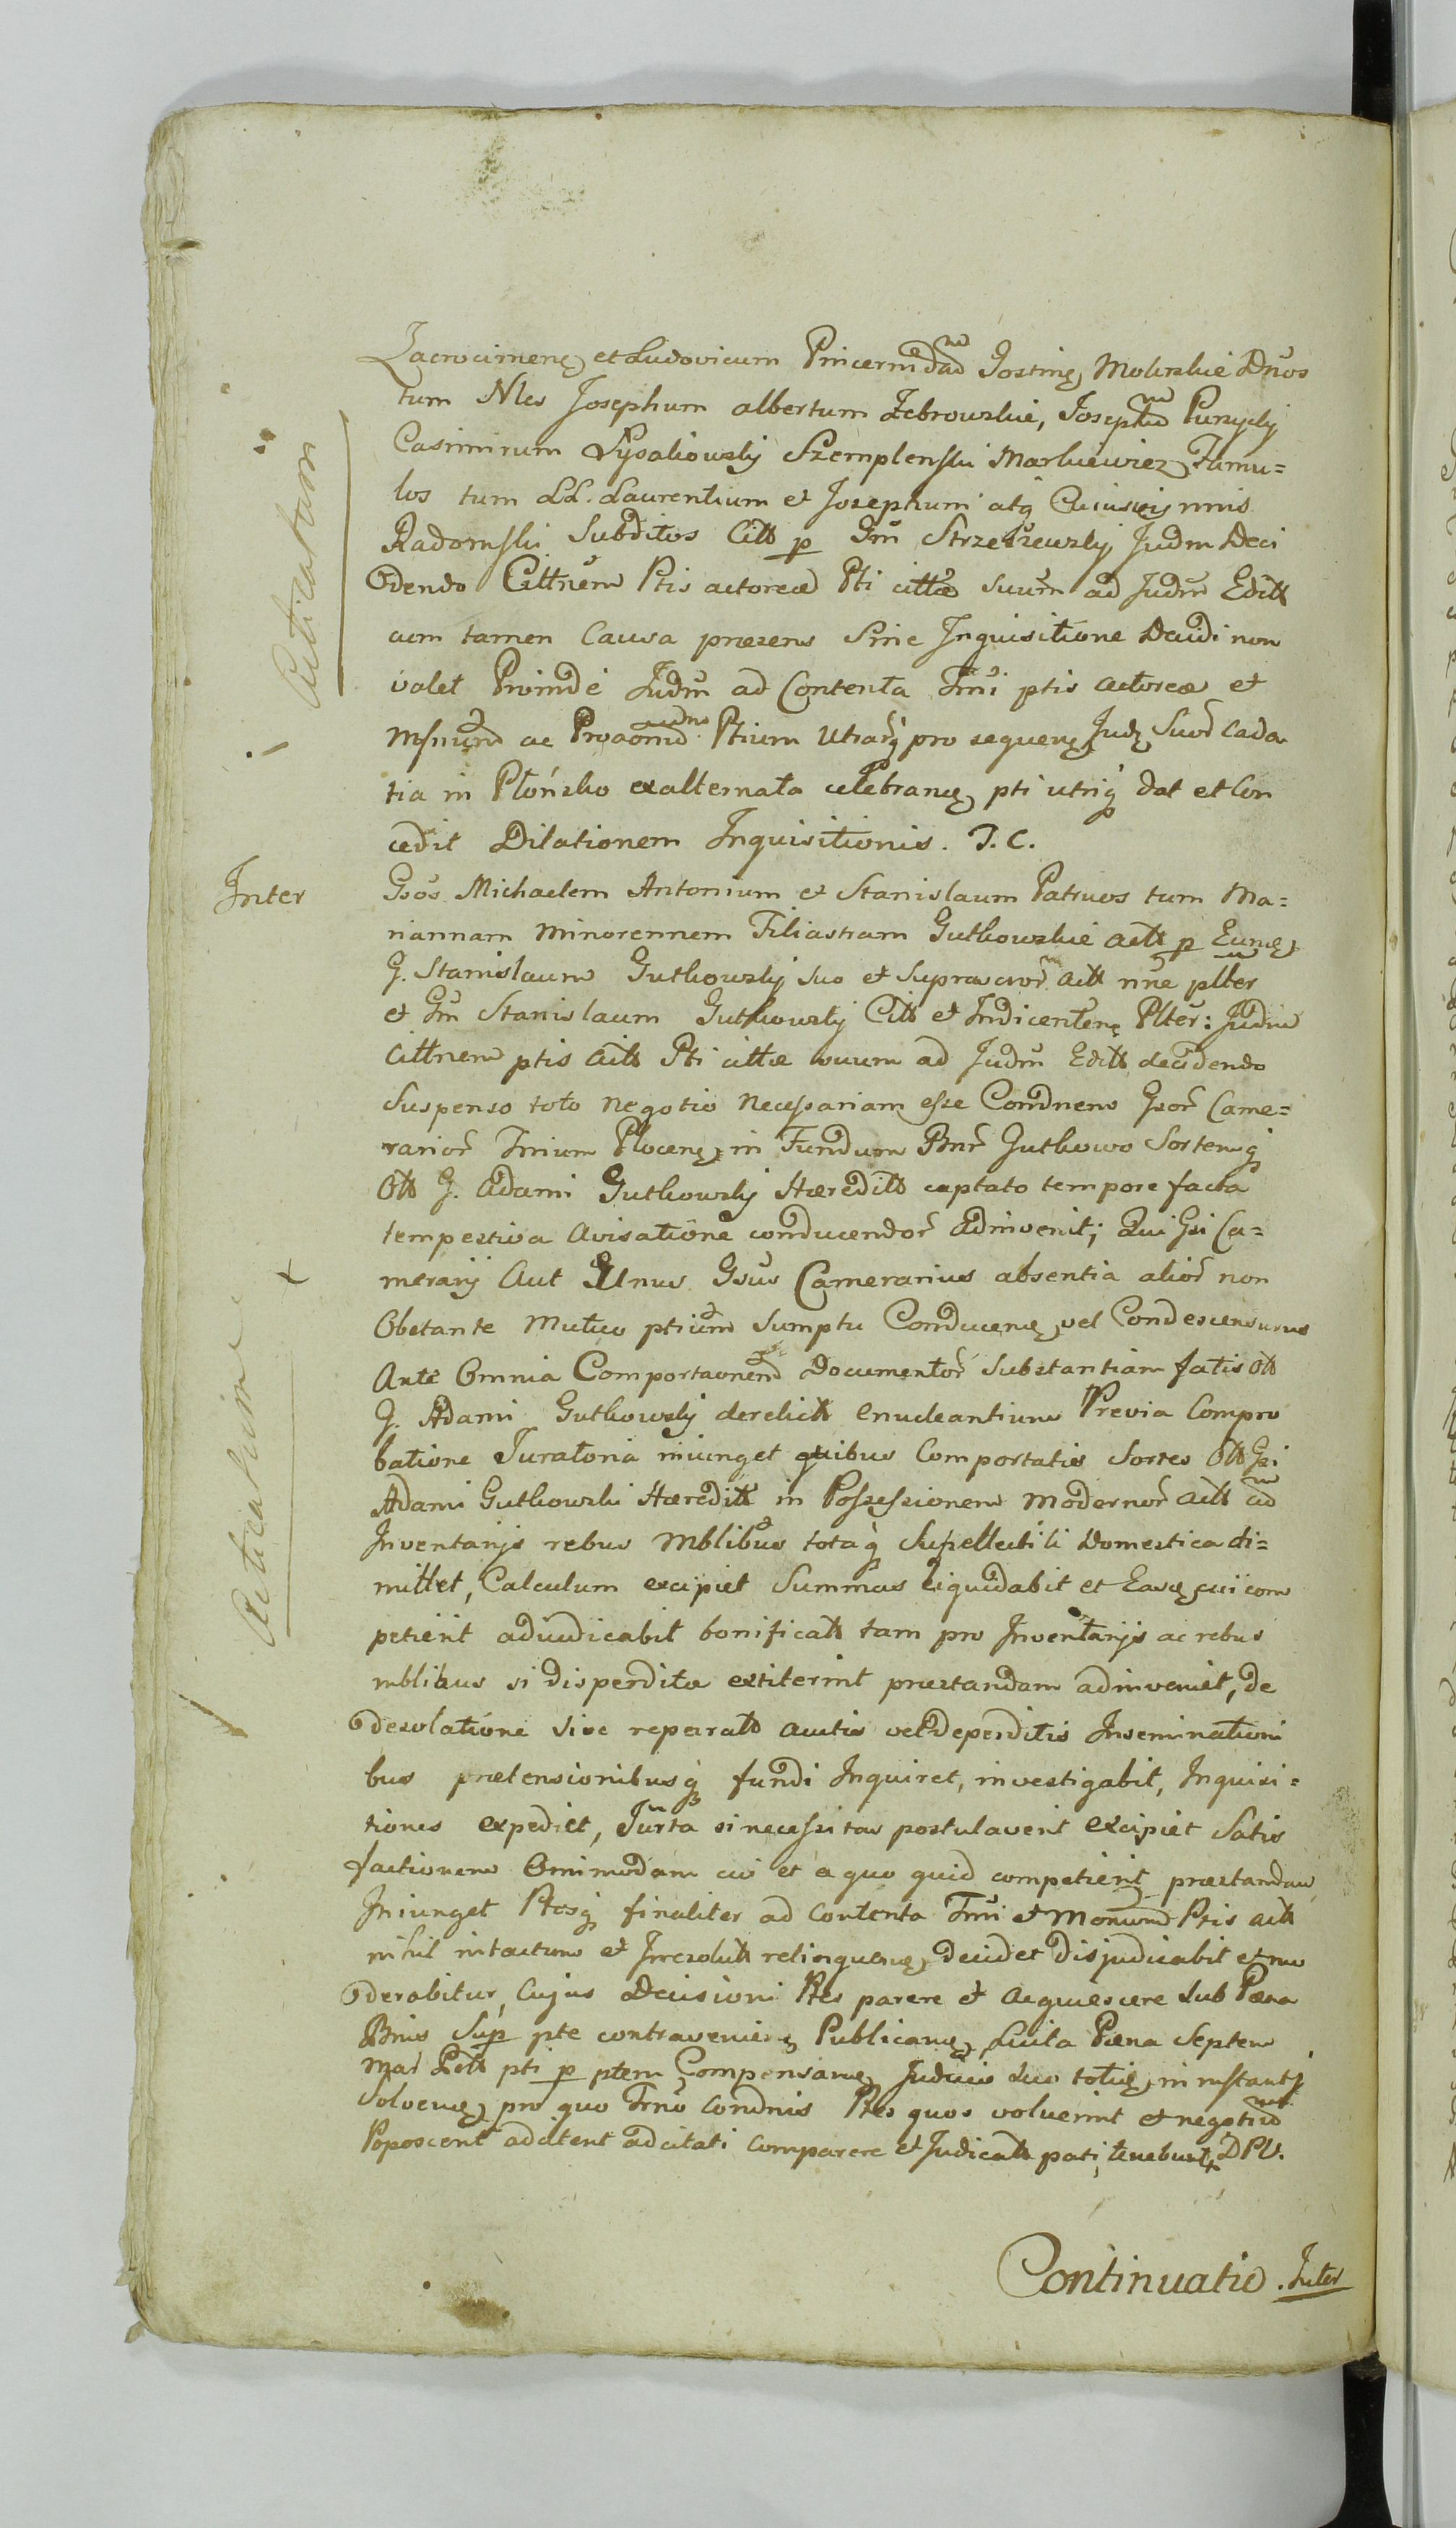 Zacrocimen et Ludovicum Pincernidam Gostinen Mokrskie Dnos
tum Nles Josephum albertum Zebrowskie, Josephum
Casimirum Szemplenski Markiewicz Famu=
los tum LL. Laurentium et Josephum atq
Radomski Subditos Citt p Gm Judm Deci
dendo Cittnem Ptis actoreae Pti cittae suum ad Judm Editt
cum tamen Causa praesens Sine Inquisitione Decidi non
valet Proinde Judm ad Contenta Tmi ptis actoreae et
ac Ptium Utrarq pro sequen Jud Suor Cada
tia in Płońsko exalternata celebran pti utriq dat et Con
cedit Dilationem Inquisitionis. T. C.
Inter Gsos Michaelem Antonium et Stanislaum Patruos tum Ma=
riannam Minorennem Filiastram Gutkowskie actt p Eun
G. Stanislaum Gutkowskij suo et supra actt nne plter
et Gm Stanislaum Gutkowskij Citt et Indicenten Plter: Judm
Cittnem ptis actt Pti cittae suum ad Judm Editt decidendo
Suspenso toto negotio necessariam esse Condnem Gsor Came=
rarior Trium Plocen in Fundum Bnr Gutkowo Sortemq
Ott G. Adami Gutkowskij Haereditt captato tempore facta
tempestiva avisatione conducendor adinvenit; Qui Gsi Ca=
merarij Aut Unus Gsus Camerarius absentia alior non
Obstante Mutuo ptium Sumptu Conducen vel Condescensurus
Ante Omnia Comportaonem Documentor Substantiam fatis Ott
G. Adami Gutkowskij derelictt enucleantium Previa Compro
batione Juratoria iniunget quibus Comportatis Sortes Ott Gsi
Adami Gutkowski Haereditt in Possessionem modernor actt cum
Inventarijs rebus Mblibus totaq Supellectili Domestica di=
mittet, Calculum excipiet Summas liquidabit et Eas cui com
petierit adiudicabit bonificatt tam pro Inventarijs ac rebus
mblibus si disperditae extiterint praestandam adinveniet, de
desolatione sive reparatt auctis vel deperditis Inseminationi
bus praetensionibusq fundi Inquiret, investigabit, Inquisi=
tiones expediet, Jurta si necessitas postulaverit excipiet Satis
factionem Omnimodam cui et a quo quid competierit praestandam
Iniunget Ptesq finaliter ad contenta Tmi et Ptis actt
nihil intactum et Irresolutt relinquen decidet disjudicabit et mo
derabitur, Cujus Decisioni Ptes parere et acquiescere sub Paena
Bnis Sup pte contravenien Publican Luita Paena Septem
Mar Pott pti p ptem Compensan Judicio suo toties in instanti
Solven pro quo Trno Condnis Ptes quos voluerint et negotium
Poposcerit adcitent adcitati comparere et Judicatt pati tenebunt DPU.
Continuatio. Inter